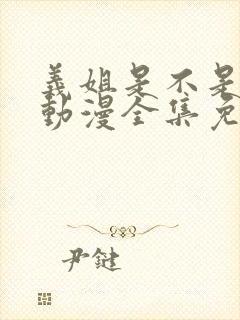 義姐是不是
動漫全集免
尹鍵